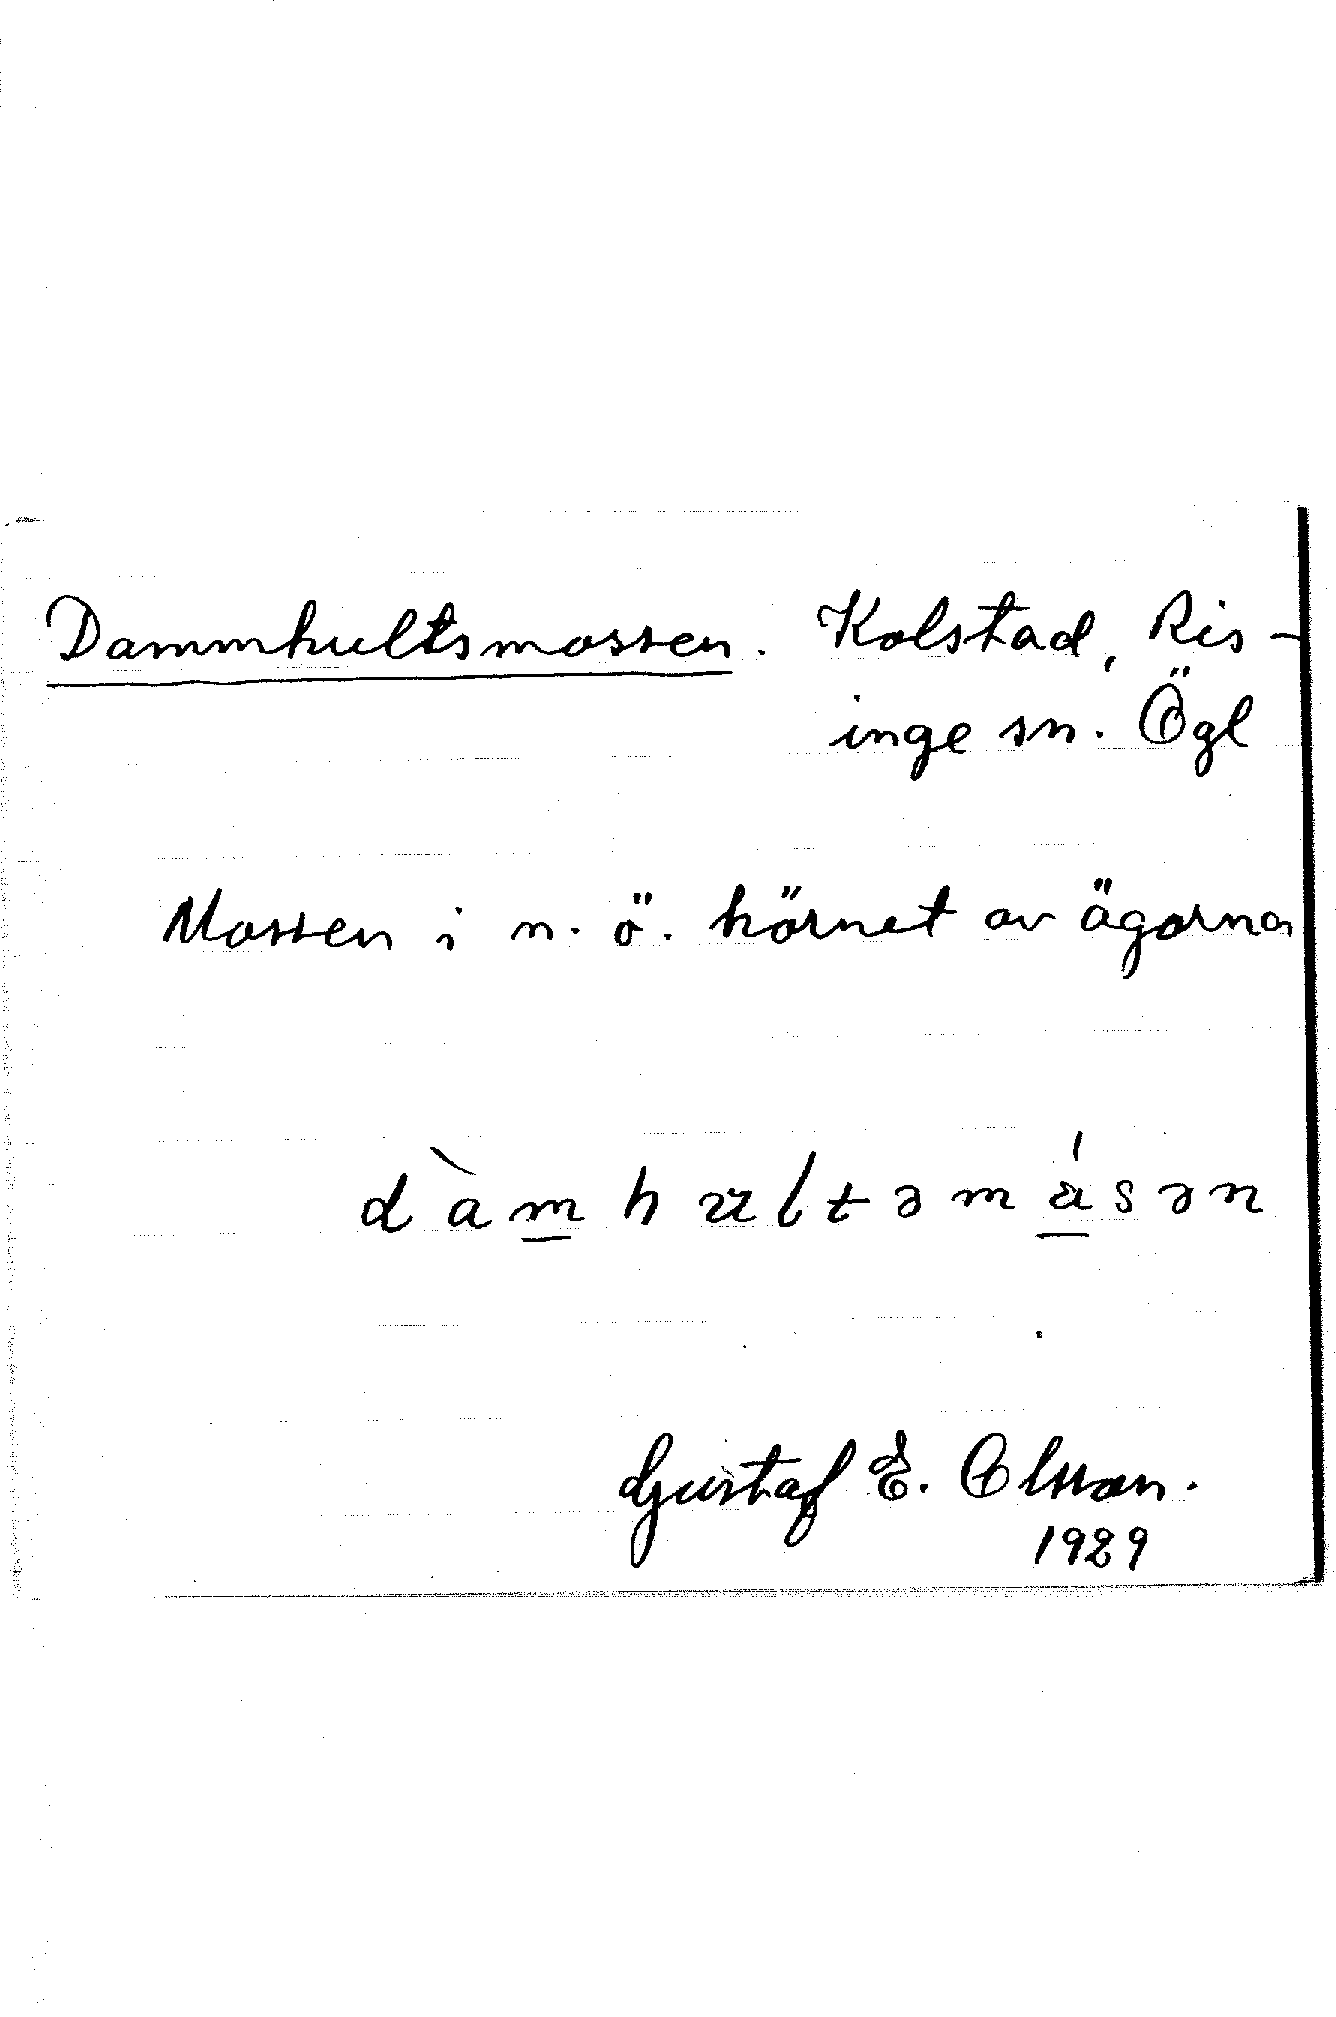 Dammhultsmossen. Kolstad, Ris-
inge sn. Ögl
Mossen i n. ö. hörnet av ägorna
dàmhultəmåsən
Gustaf E. Olsson.
1929